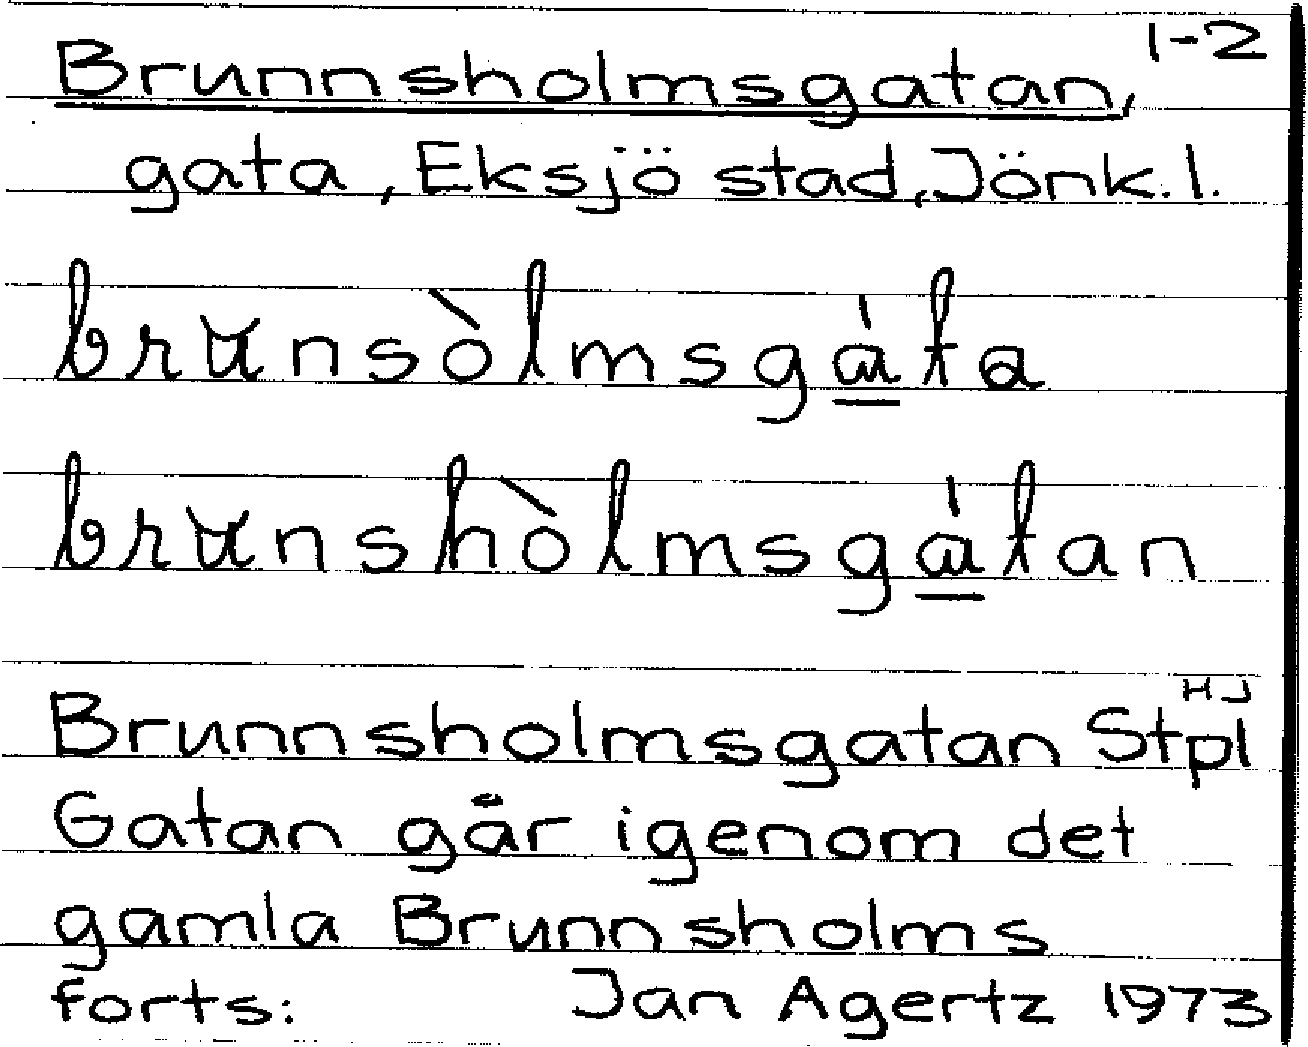 1-2
Brunnsholmsgatan,
gata, Eksjö stad, Jönk. l.
brunsòlmsgáta
brunshòlmsgátan
HJ
Brunnsholmsgatan Stpl
Gatan går igenom det
gamla Brunnsholms
forts: Jan Agertz 1973